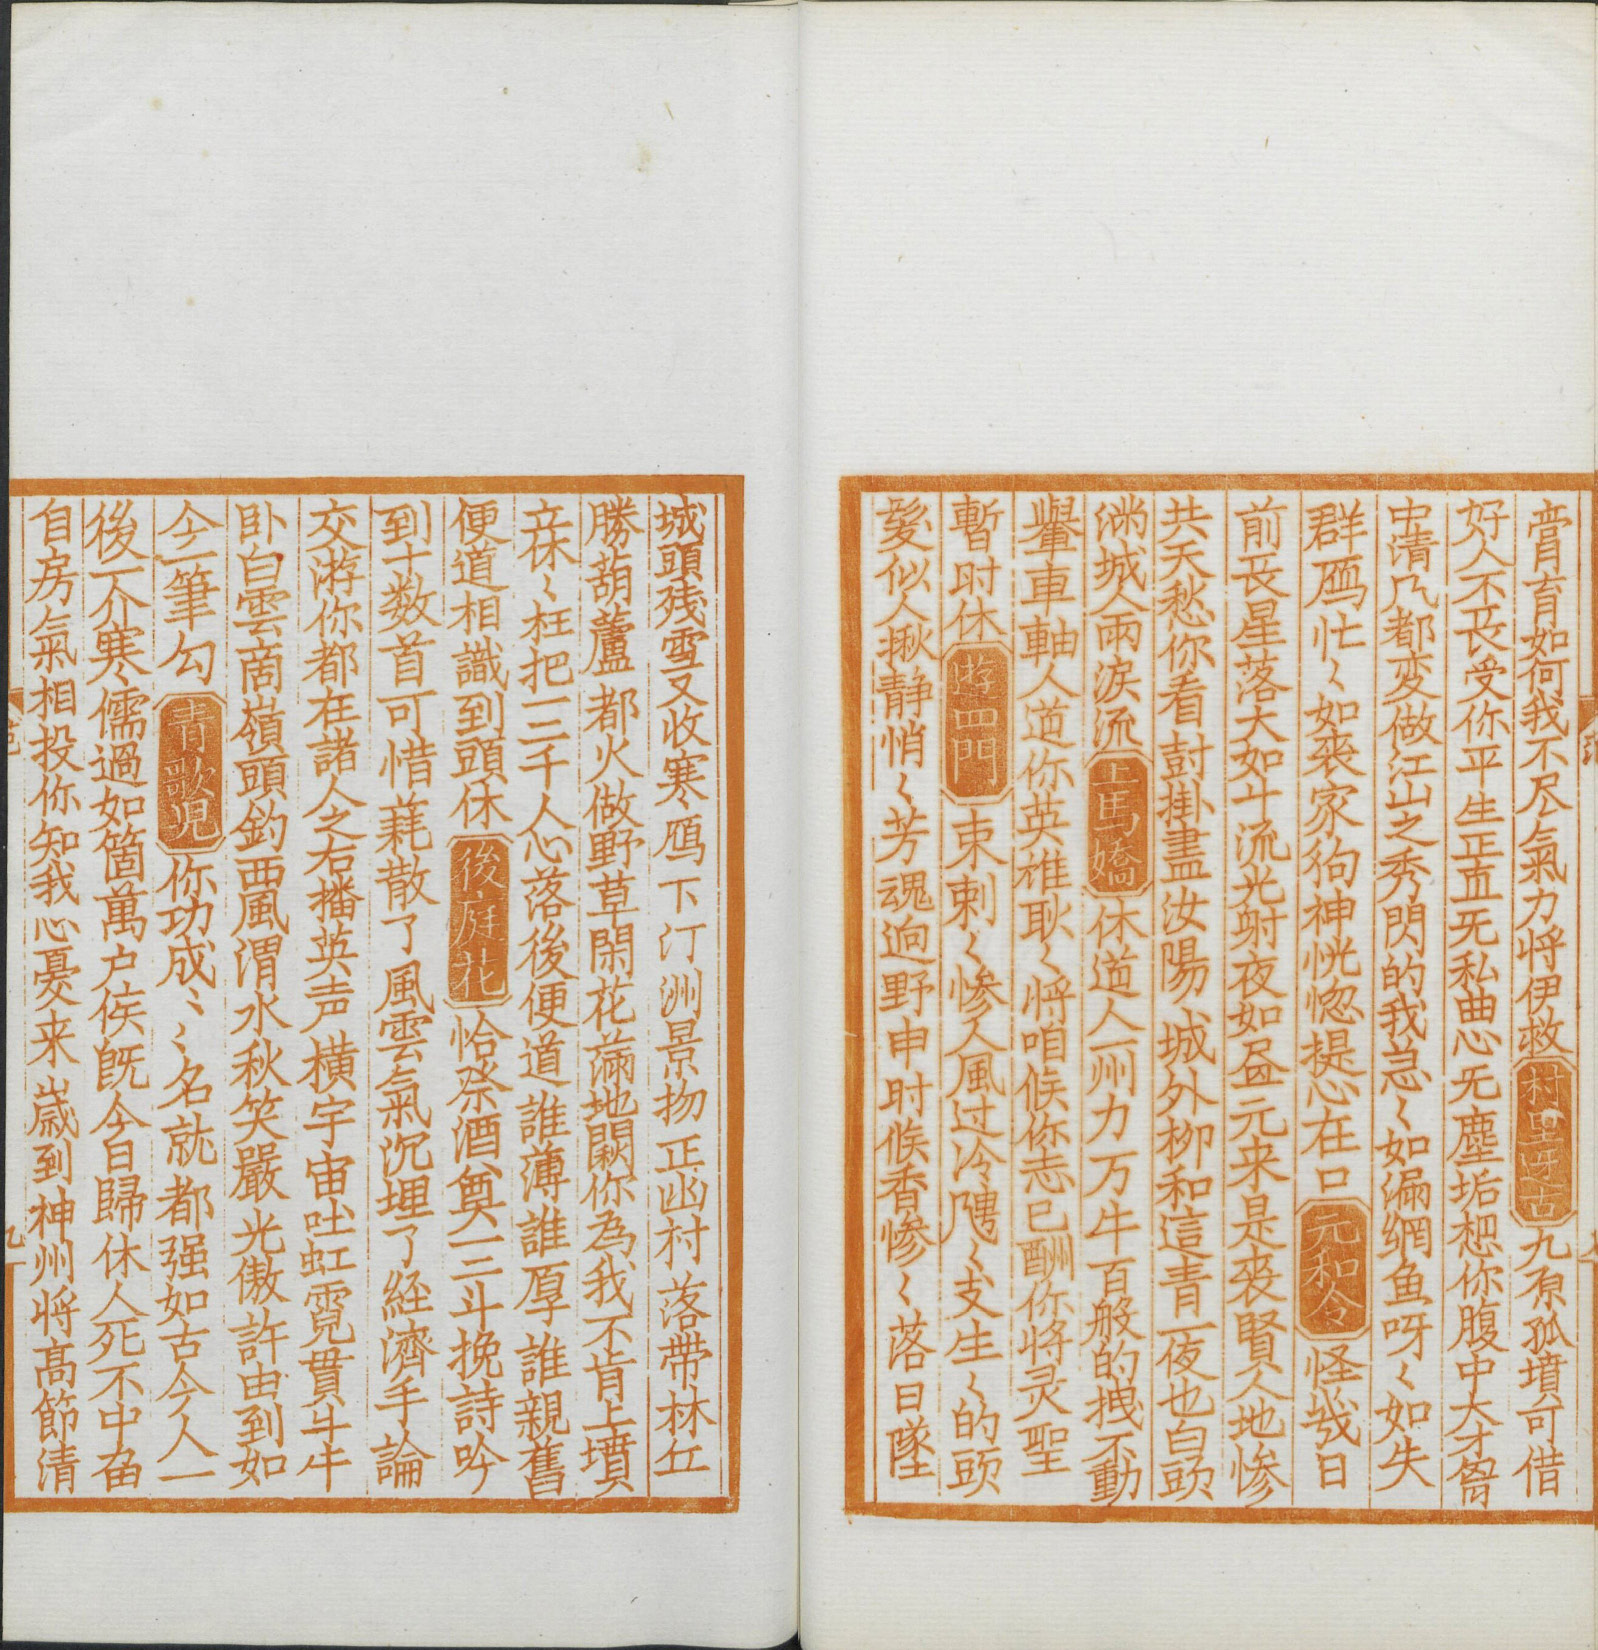 膏肓如何我不尽氣力将伊救村里迓古九原孤墳可借
好人不長受你平生正直无私曲心无塵垢想你腹中大才胷
中清凡都変做江山之秀閃的我急〻如漏網鱼呀〻如失
群鴈忙〻如喪家狗神恍惚提心在口元和令怪幾日
前長星落大如斗流光射夜如昼元来是喪賢人地惨
共天愁你看尌掛盡汝陽城外柳和這青一夜也白頭
滿城人兩淚流上馬嬌休道人一州力万牛百般的拽不動
轝車軸人道你英雄耿〻将咱候你志已酬你将灵聖
暫时休遊四門朿剌〻惨人風过冷颼〻支生〻的頭
髮似人揪静悄〻芳魂逈野申时候香惨〻落日墜
城頭残雪又收寒鴈下汀洲景物正幽村落帶林丘
勝葫蘆都火做野草閑花滿地闕你為我不肯上墳
哀休〻枉把二三千人心落後便道誰薄誰厚誰親舊
便道相識到頭休後庭花恰祭酒奠一二斗挽詩吟
到十数首可惜耗散了風雲氣沉埋了経濟手論
交游你都在諸人之右播英声橫宇宙吐虹霓貫斗牛
卧白雲商嶺頭釣西風渭水秋笑嚴光傲許由到如
今一筆勾青歌児你功成〻〻名就都强如古今人一
後一介寒儒過如箇萬户侯旣今日歸休人死不中畱
自房氣相投你知我心憂来歲到神州将高節清